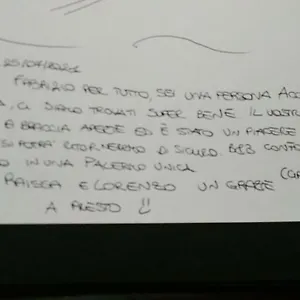 25/04/2022
FABRIZIO PER TUTTO, SEI UNA PERSONA ACC
A, CI SIAMO TROVATI SUPER BENE IL VOSTR
E BRACCIA APERTE ED È STATO UN PIACERE
SI POTRÀ RITORNEREMO DI SICURO. B&B CONFO
IN UNA PALERMO UNICA
RAISSA E LORENZO UN GRANDE
A PRESTO